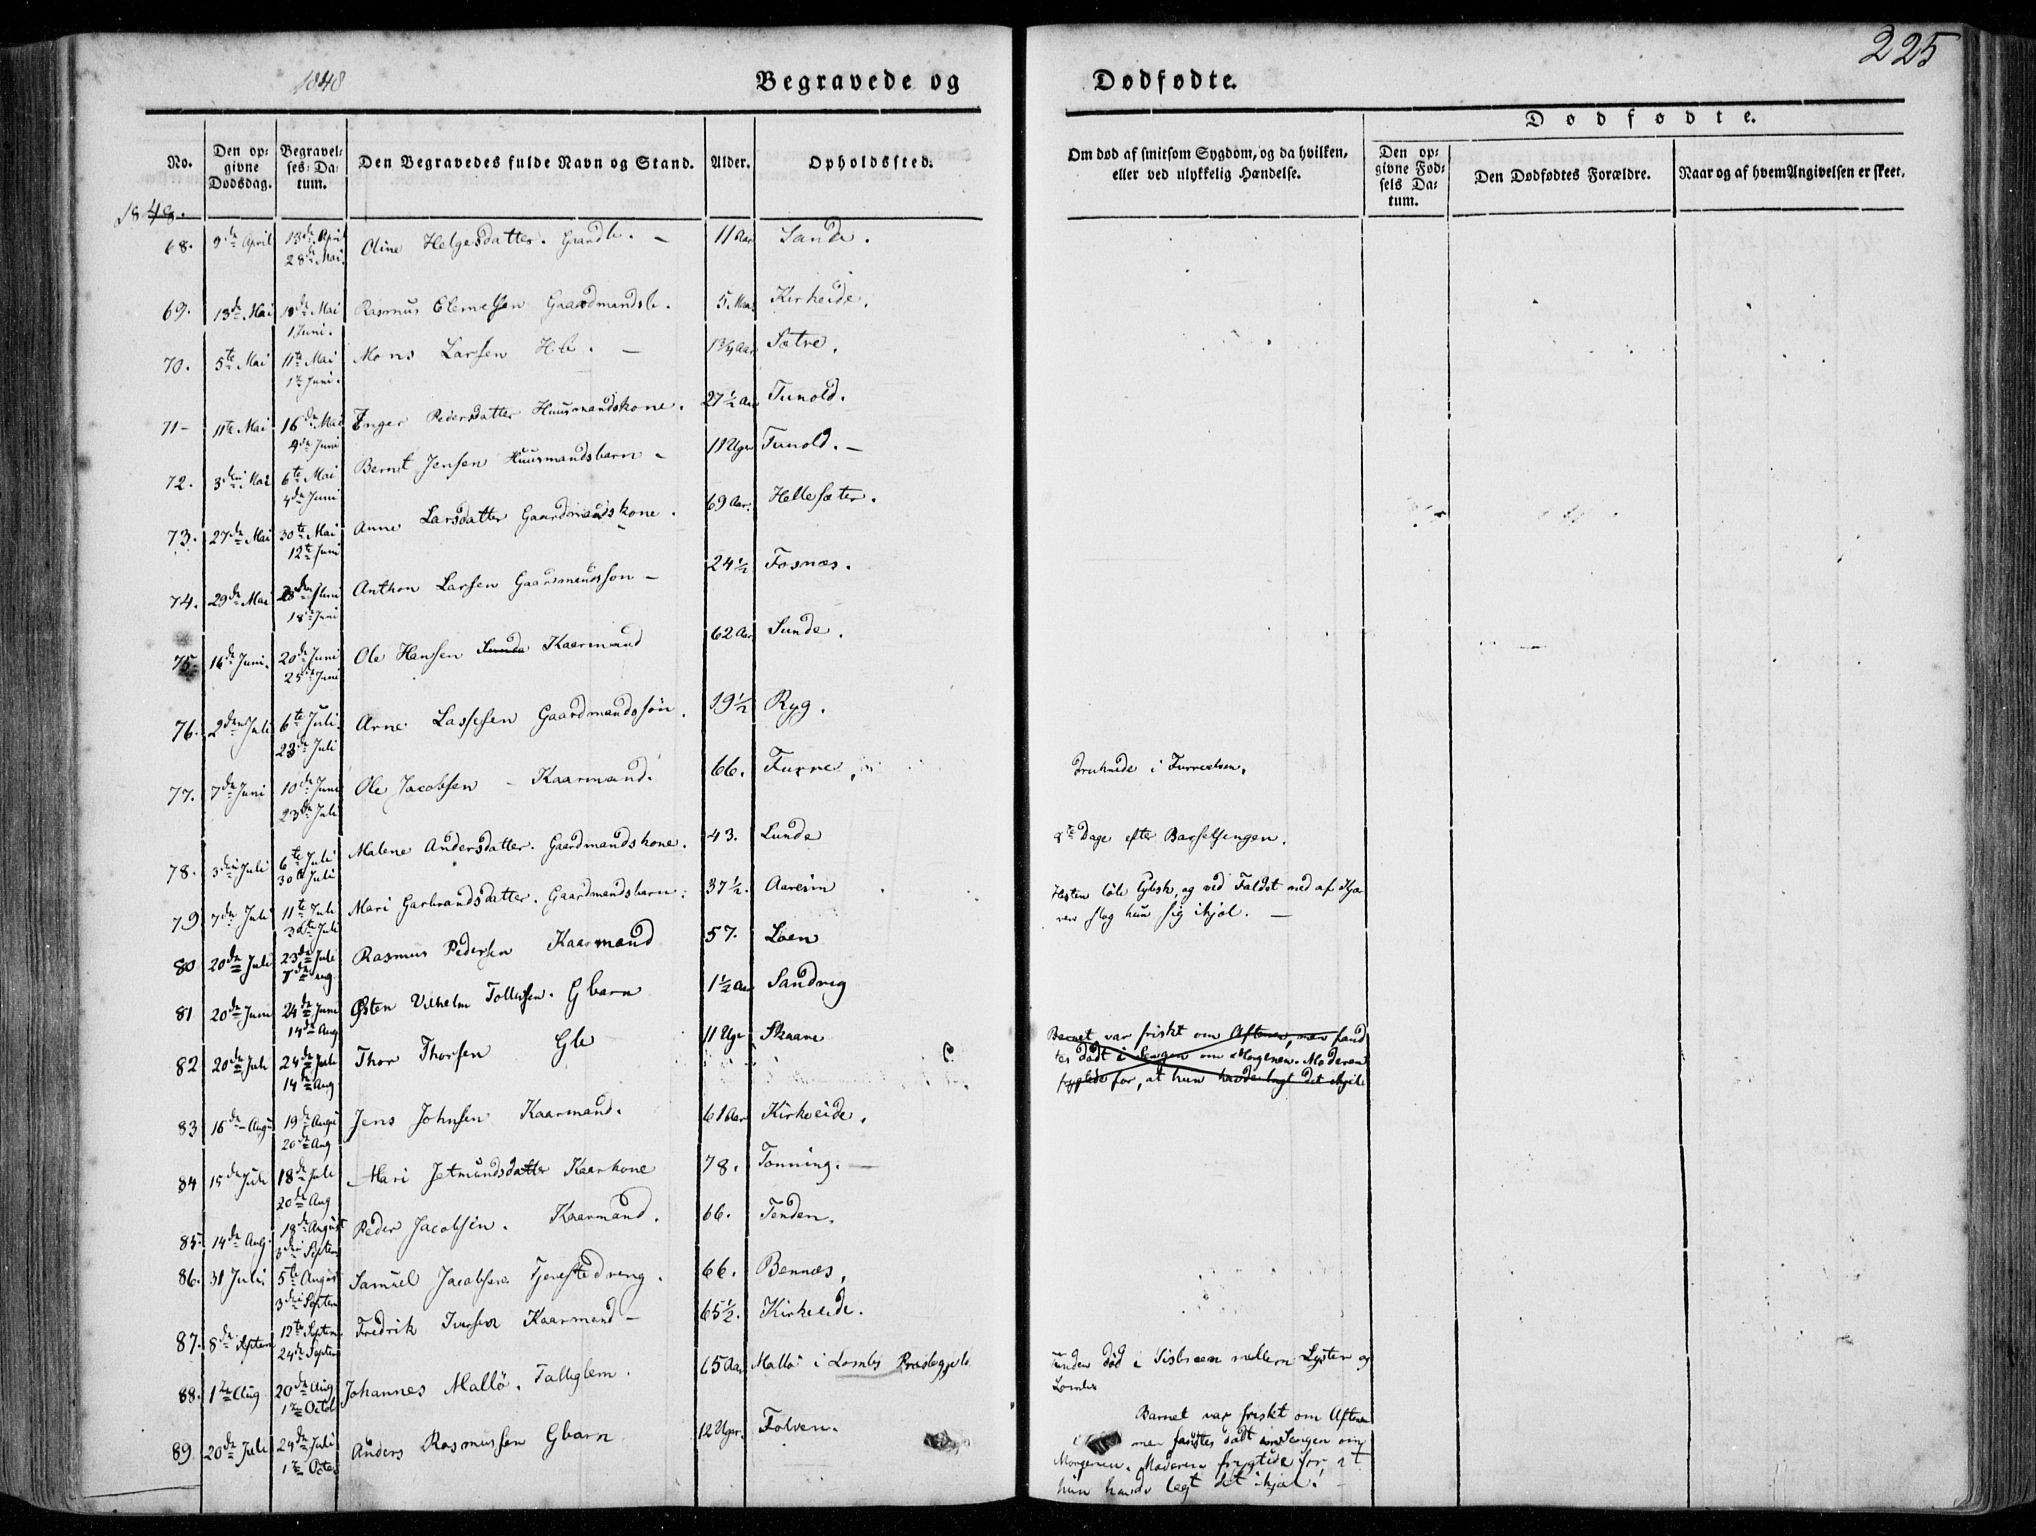 225
1848
Begravede og Dødfødte.
Dødfødte.
No. Den opgivne Dødsdag. Begravelses-Datum. Den Begravedes fulde Navn og Stand. Alder. Opholdsted. Om død af smitsom Sygdom, og da hvilken, eller ved ulykkelig Hændelse. Den opgivne Fødsels Datum. Den Dødfødtes Forældre. Naar og af hvem Angivelsen er skeet.
1848.
68. 9de April 13de April Oline Helgesdatter. 11 Aar Sande.
28de Mai.
69. 13de Mai 18de Mai Rasmus Gaardmandsb. 5 Kirkeide.
1 Juni.
70. 5te Mai 11te Mai Mons Larsen 1¾ Aar Sætre.
1te Juni.
71 11te Mai 16de Mai Inger Pedersdatter Huusmandskone. 27½ Aar Tunold.
4de Juni
72. 3die Mai 6te Mai Bernt Jensen Huusmandsbarn 11 Uger Tunold.
4de Juni
73. 27de Mai 30te Mai Anne Larsdatter Gaardmandskone. 69 Aar. Hellesæter.
12te Juni
74. 29de Mai Juni Anthon Larsen Gaardmandssøn 24½ Fosnæs.
18de Juni
75. 16de Juni. 20de Juni Ole Hansen Sunde Kaarmand 62 Aar Sunde.
25de Juni
76. 2den Juli 6te Juli Arne Lassesen Gaardmandssøn. 19½ Ryg.
23de Juli
77. 7de Juni 10de Juni Ole Jacobsen Kaarmand. 66. Furre. Druknede i Furreelven.
23de Juli
78. 3die Juli 6te Juli Malene Andersdatter. Gaardmandskone. 43. Lunde Dage efter Barselsengen.
30te Juli
79 7de Juli 11te Juli Mari Garbrandsdatter. Gaardmandsbarn. 37½. Aareim Hesten løb og ved Faldet ned af
30te Juli slog hun sig ihjel.
80 20de Juli 23de Juli Rasmus Pedersen Kaarmand 57. Loen
7de Aug
81 20de Juni 24de Juni Østen Vilhelm Tollefsen. Gbarn 1½ Aar Sandvig
14de Aug
82 20de Juli 24de Juli Thor Thorsen Gb 11 Uger Skaare Barnet var friskt om Aftenen, men fand
14de Aug tes dødt i Sengen om Morgenen. Moderen
for, at hun havde lagt det ihjel.
83 16de Aug 19de Aug Jens Johnsen Kaarmand. 61 Aar Kirkeide.
20de Aug
84 15de Juli 18de Juli Mari Jetmundsdatter Kaarkone 78. Tonning.
20de Aug
85. 14de Aug. 18de August Peder Jacobsen. Kaarmand. 66. Tenden.
3die Septem
86. 31 Juli 5te August Samuel Jacobsen Tjenestedreng. 66. Bennæs.
3die Septem
87. 8de Septem 12te Septem. Fredrik Iversen Kaarmand 65½. Kirkeide.
24de Septem
88. 1te Aug 20de Aug Johannes Mallö. 65 Aar Mallö i Lombs Præstegjeld Funden død i Iisbræen mellem Lyster og
1te Octob Lombs
89 20de Juli 24de Juli Anders Rasmussen Gbarn 12 Uger. Folven. Barnet var friskt om Aftenen
1te Octob men fandtes dødt Sengen om
Morgenen. Moderen frygtede for at
hun havde lagt det ihjel.